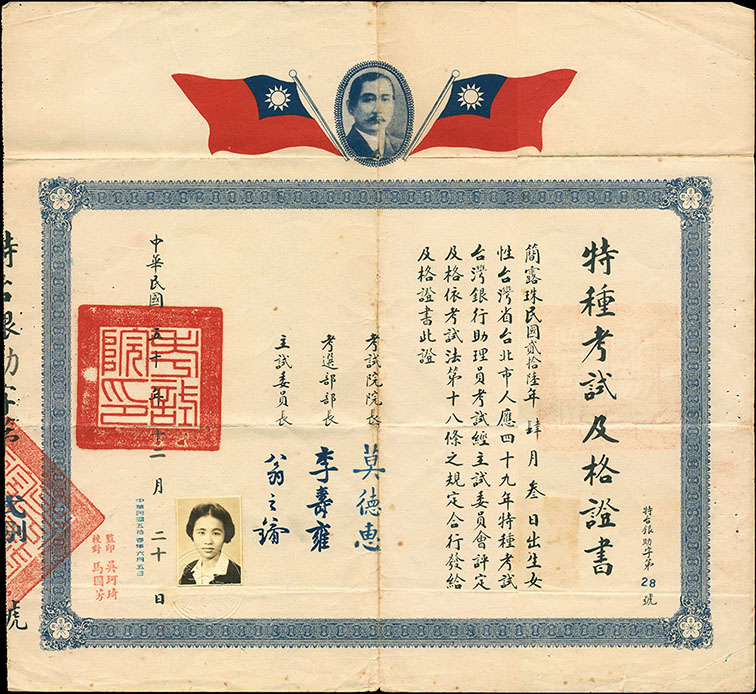 特種考試及格證書
特台銀助字第28號
簡露珠民國貳拾陸年肆月叁日出生女
性台灣省台北市人應四十九年特種考試
台灣銀行助理員考試經主試委員會評定
及格依考試法第十八條之規定合行發給
及格證書此證
考試院院長 莫德惠
考選部部長 李壽雍
主試委員長 翁之鏞
中華民國五十年十二月二十日
考試院印
監印 吳珂琦
校對 馬國芳
特台銀助字第
號